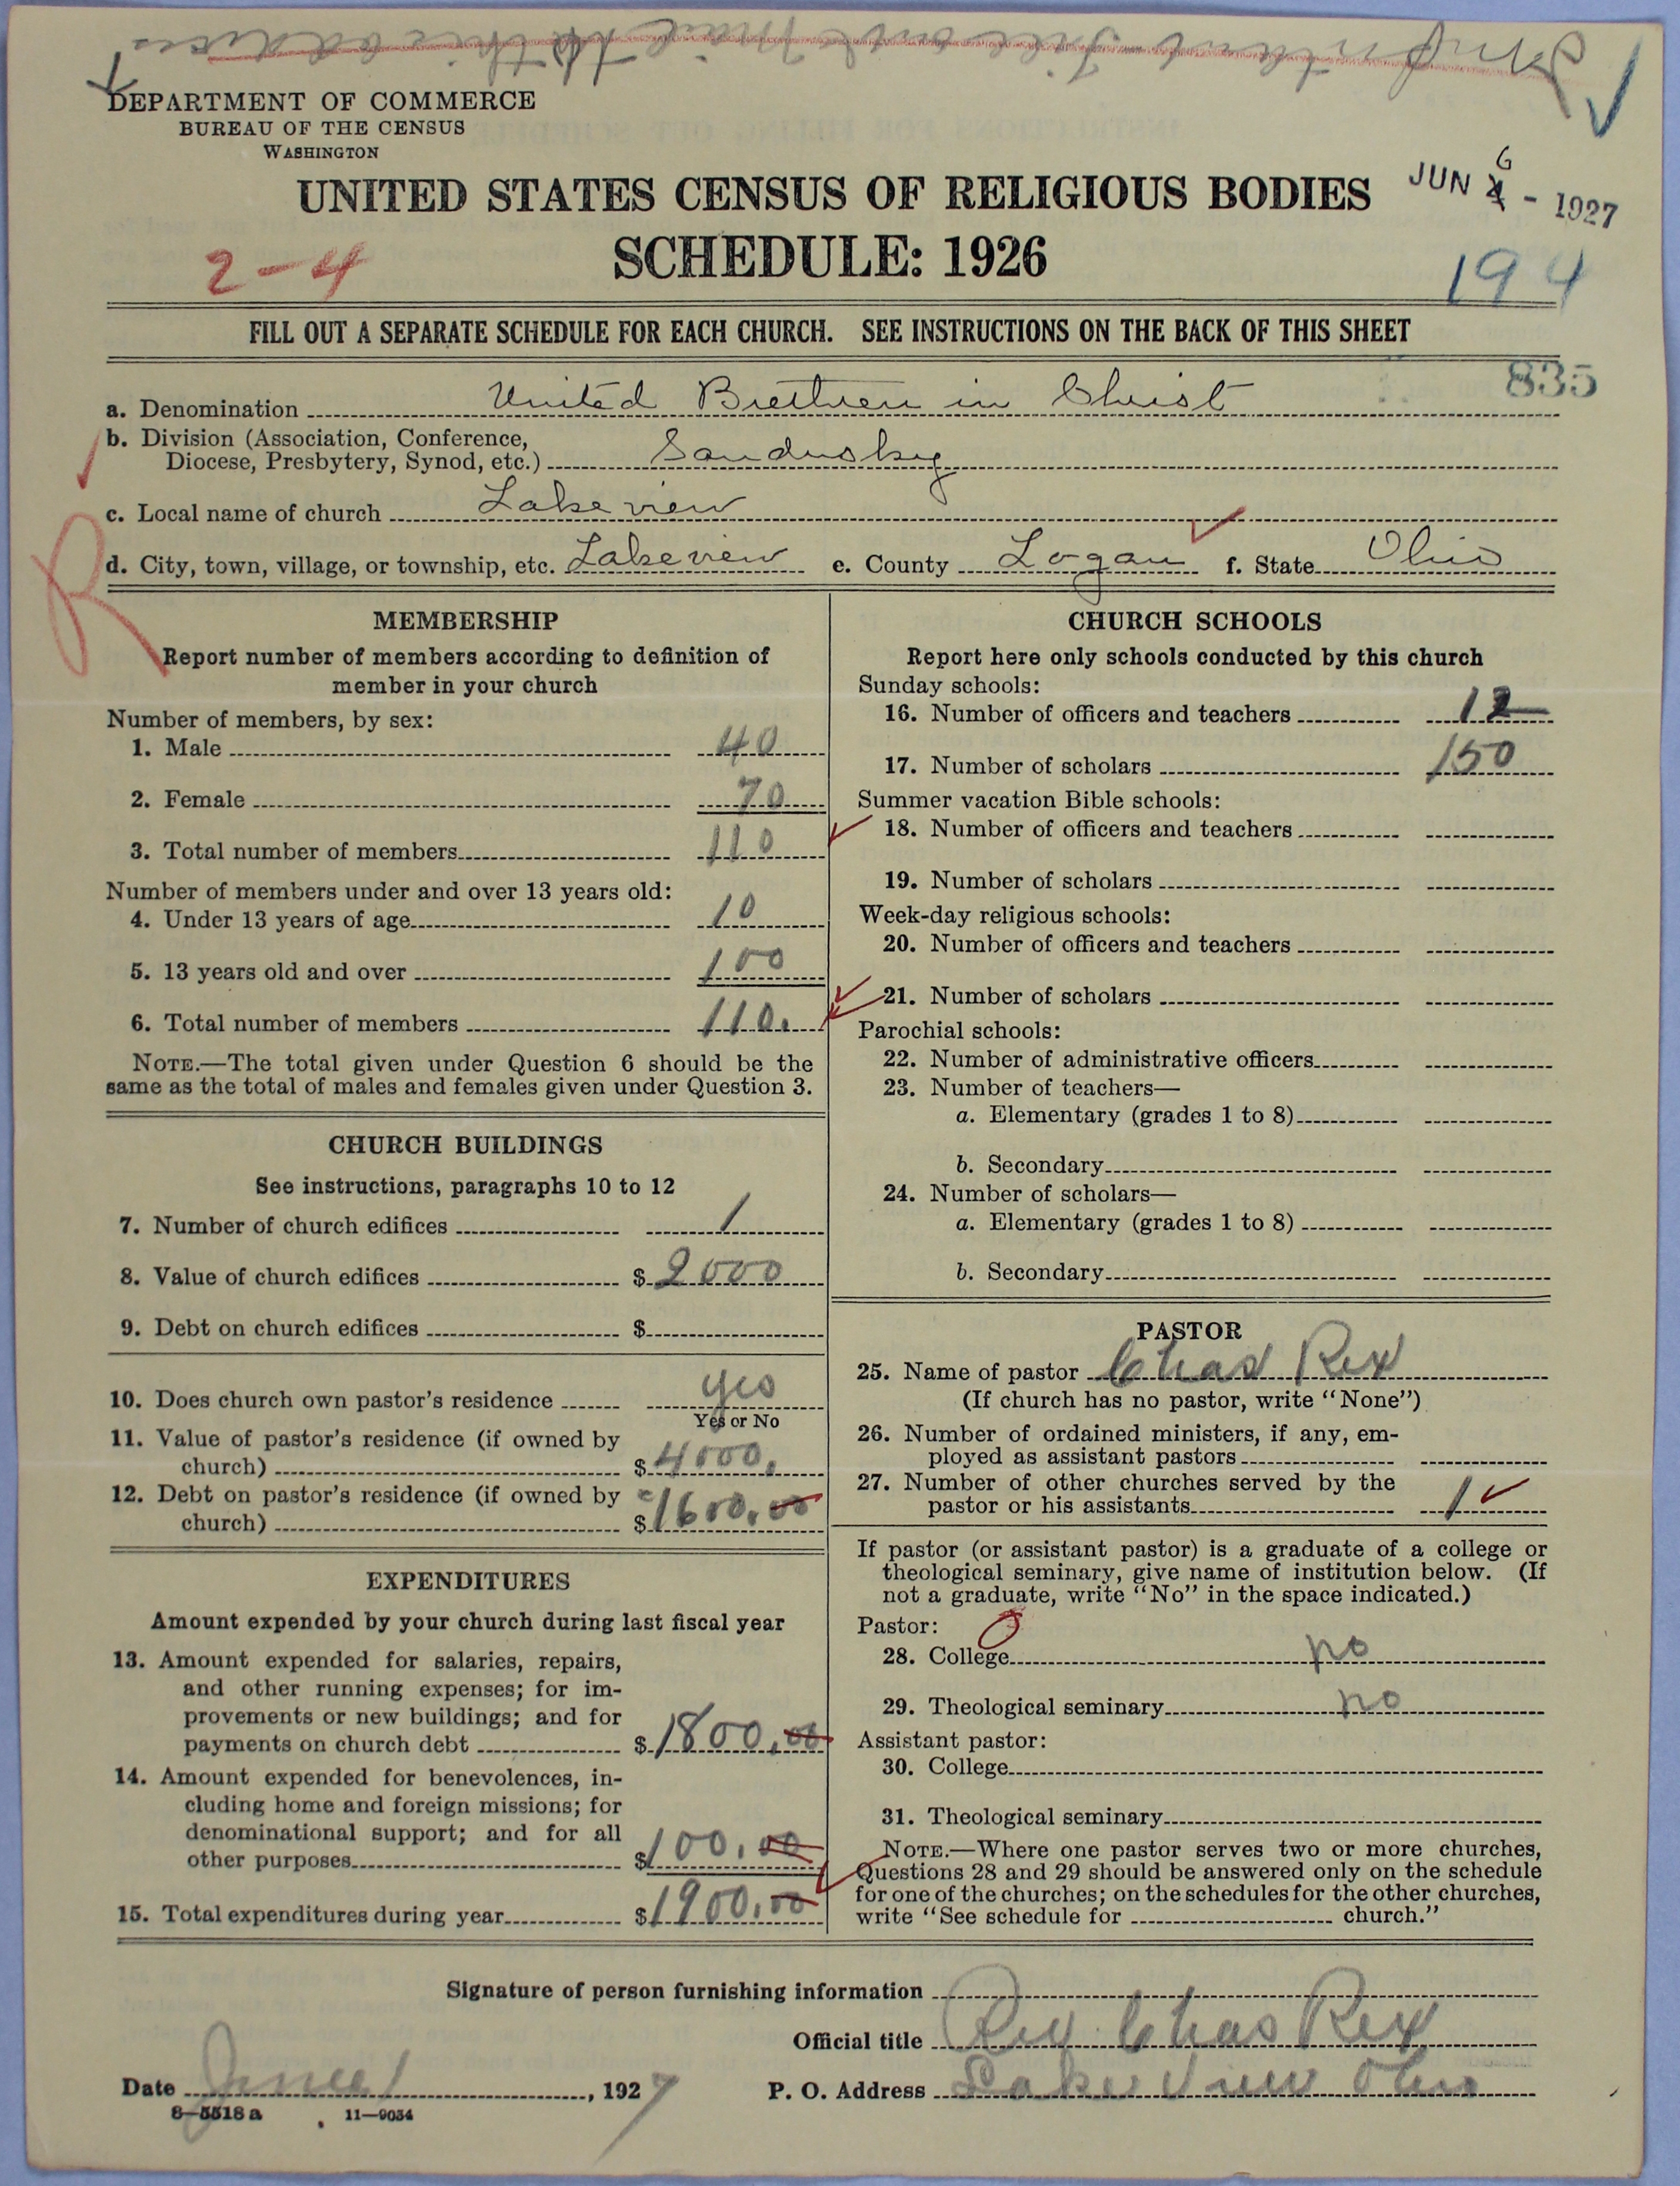 Important Fill out & Mail to this address
DEPARTMENT OF COMMERCE
BUREAU OF THE CENSUS
WASHINGTON
UNITED STATES CENSUS OF RELIGIOUS BODIES
JUN 4 6 - 1927
SCHEDULE: 1926
2-4
194
FILL OUT A SEPARATE SCHEDULE FOR EACH CHURCH. SEE INSTRUCTIONS ON THE BACK OF THIS SHEET
835
a. Denomination United Brethren in Christ
b. Division (Association, Conference,
Diocese, Presbytery, Synod, etc.) Sandusky
c. Local name of church Lakeview
R
d. City, town, village, or township, etc. Lakeview e. County Logan f. State Ohio
MEMBERSHIP
Report number of members according to definition of
member in your church
Number of members, by sex:
1. Male 40
2. Female 70
3. Total number of members 110
Number of members under and over 13 years old:
4. Under 13 years of age 10
5. 13 years old and over 100
6. Total number of members 110.
NOTE.—The total given under Question 6 should be the
same as the total of males and females given under Question 3.
CHURCH BUILDINGS
See instructions, paragraphs 10 to 12
7. Number of church edifices 1
8. Value of church edifices $ 2000
9. Debt on church edifices $
10. Does church own pastor's residence yes
Yes or No
11. Value of pastor's residence (if owned by
church) $ 4000.
12. Debt on pastor's residence (if owned by
church) $ 1600.00
EXPENDITURES
Amount expended by your church during last fiscal year
13. Amount expended for salaries, repairs,
and other running expenses; for im-
provements or new buildings; and for
payments on church debt $ 1800.00
14. Amount expended for benevolences, in-
cluding home and foreign missions; for
denominational support; and for all
other purposes $ 100.00
15. Total expenditures during year $ 1900.00
CHURCH SCHOOLS
Report here only schools conducted by this church
Sunday schools:
16. Number of officers and teachers 12
17. Number of scholars 150
Summer vacation Bible schools:
18. Number of officers and teachers
19. Number of scholars
Week-day religious schools:
20. Number of officers and teachers
21. Number of scholars
Parochial schools:
22. Number of administrative officers
23. Number of teachers—
a. Elementary (grades 1 to 8)
b. Secondary
24. Number of scholars—
a. Elementary (grades 1 to 8)
b. Secondary
PASTOR
25. Name of pastor Chas Rex
(If church has no pastor, write "None")
26. Number of ordained ministers, if any, em-
ployed as assistant pastors
27. Number of other churches served by the
pastor or his assistants 1
If pastor (or assistant pastor) is a graduate of a college or
theological seminary, give name of institution below. (If
not a graduate, write "No" in the space indicated.)
Pastor:
28. College no
29. Theological seminary no
Assistant pastor:
30. College
31. Theological seminary
NOTE.—Where one pastor serves two or more churches,
Questions 28 and 29 should be answered only on the schedule
for one of the churches; on the schedules for the other churches,
write "See schedule for church."
Signature of person furnishing information
Official title Rev. Chas Rex
Date June 1, 1927 P. O. Address Lake View Ohio
8-5518 a 11-9034